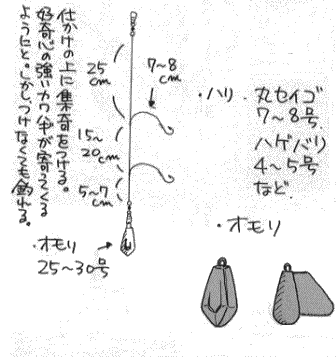 仕かけの上に集寄をつける。
好奇心の強いカワハギが寄ってくる
ようにと。しかしつけなくても釣れる。
25cm
7〜8cm
15〜20cm
5〜7cm
・オモリ
25〜30号
・ハリ 丸セイゴ
7〜8号
ハゲバリ
4〜5号
など.
・オモリ